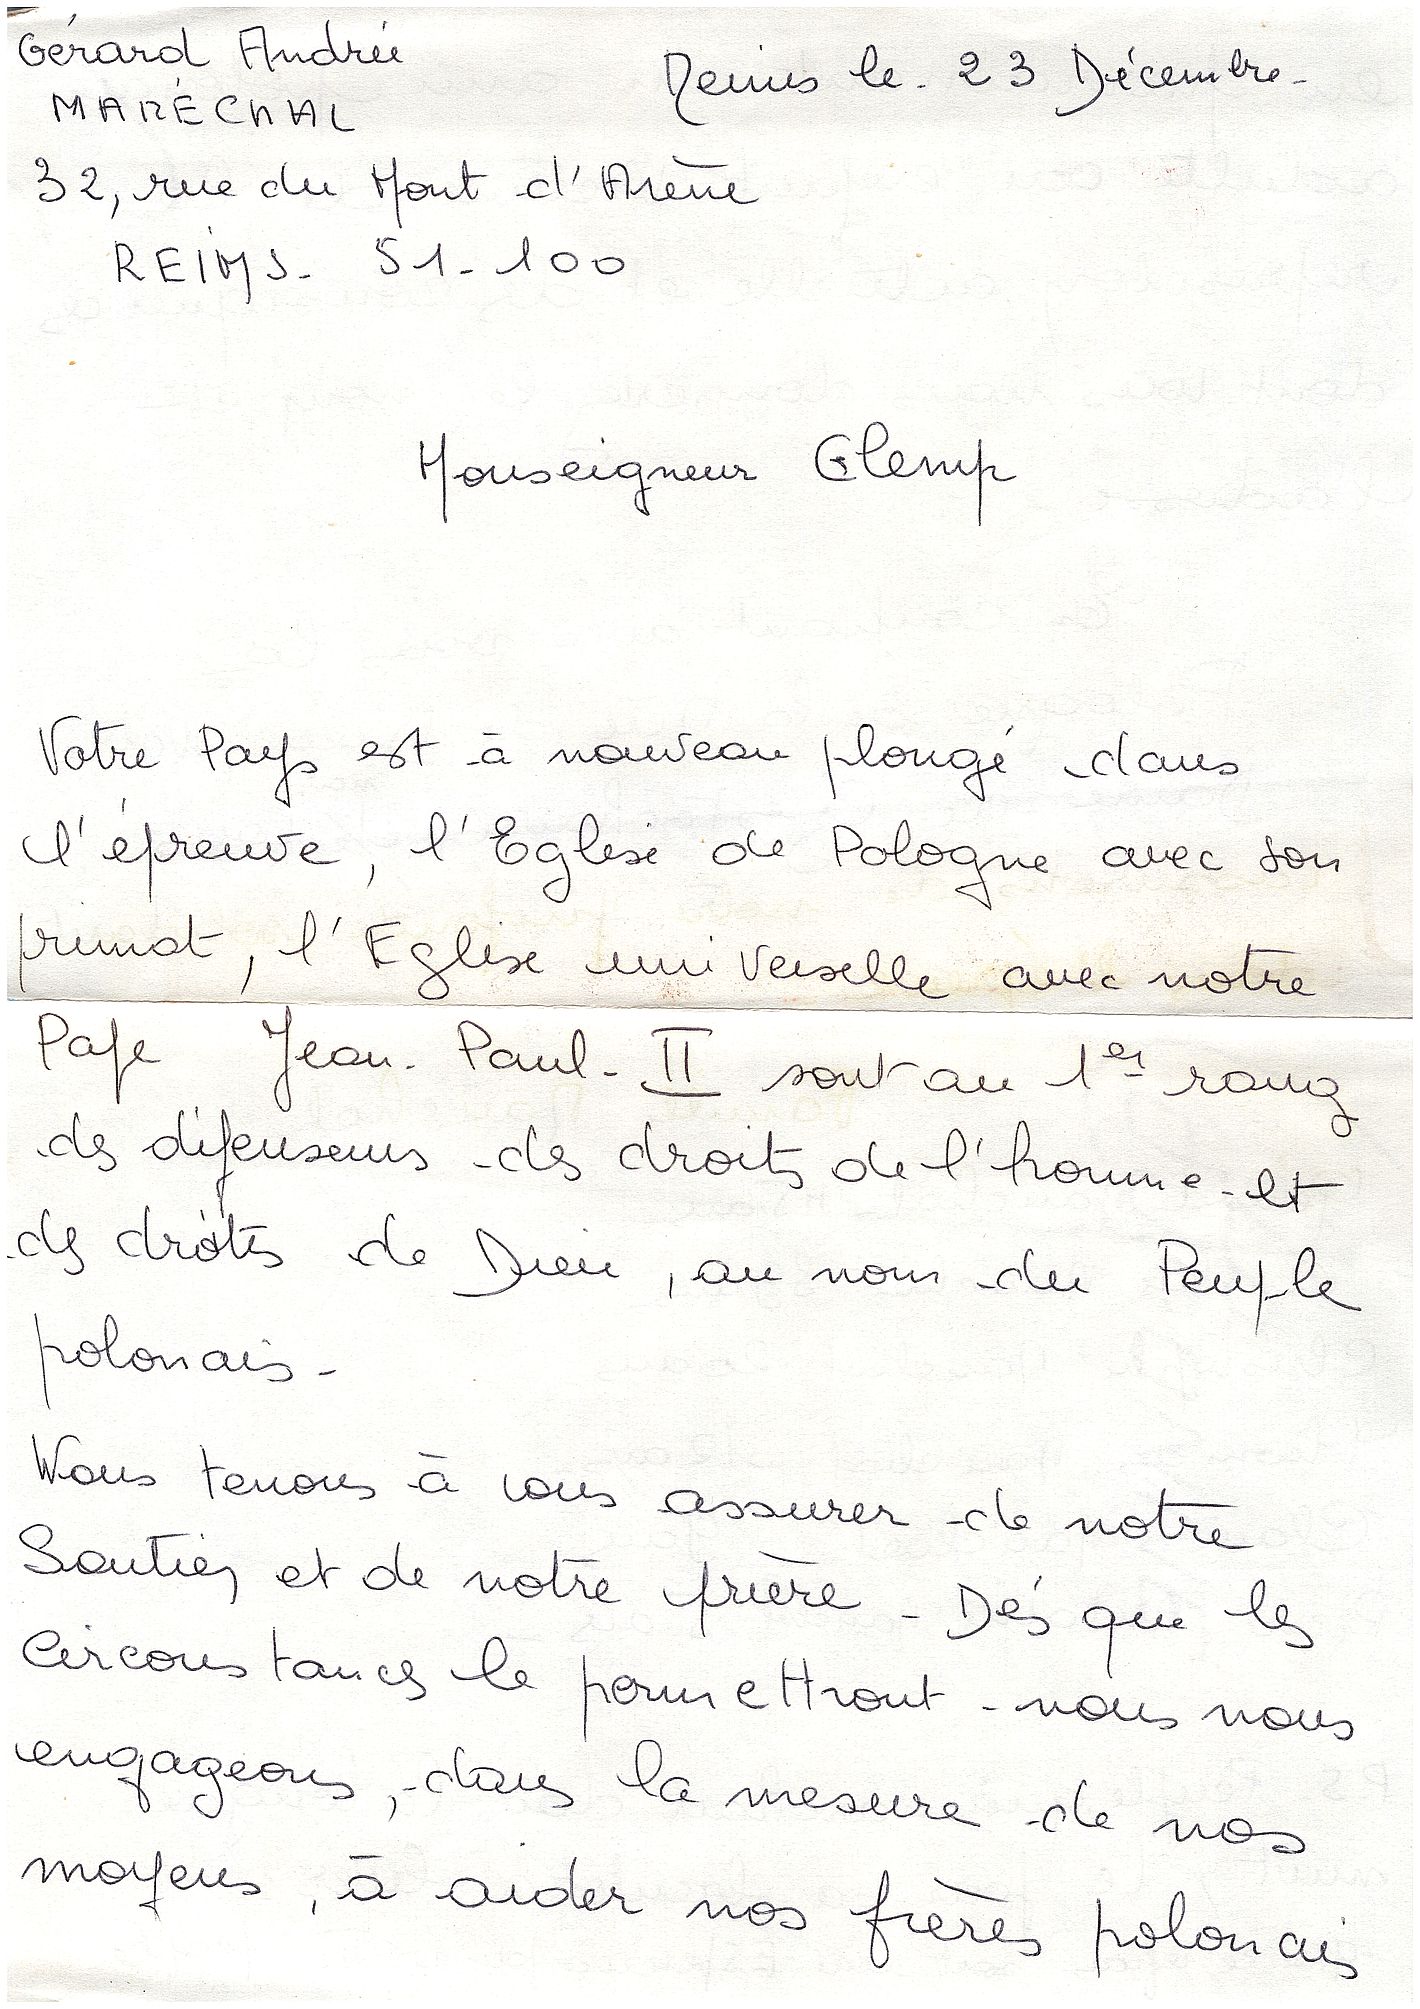 Gérard Andrée
MARÉCHAL
Reims le. 23 Décembre-
32, rue du Mont d'Arène
REIMS- 51-100
Monseigneur Glemp
Votre Pays est à nouveau plongé dans
l'épreuve, l'Eglise de Pologne avec son
primat, l'Eglise universelle avec notre
Pape Jean-Paul-II sont au 1er rang
des défenseurs des droits de l'homme et
des droits de Dieu, au nom du Peuple
polonais-
Nous tenons à vous assurer de notre
Soutien et de notre prière- Dés que les
Circonstances le permettront-nous nous
engageons, dans la mesure de nos
moyens, à aider nos frères polonais